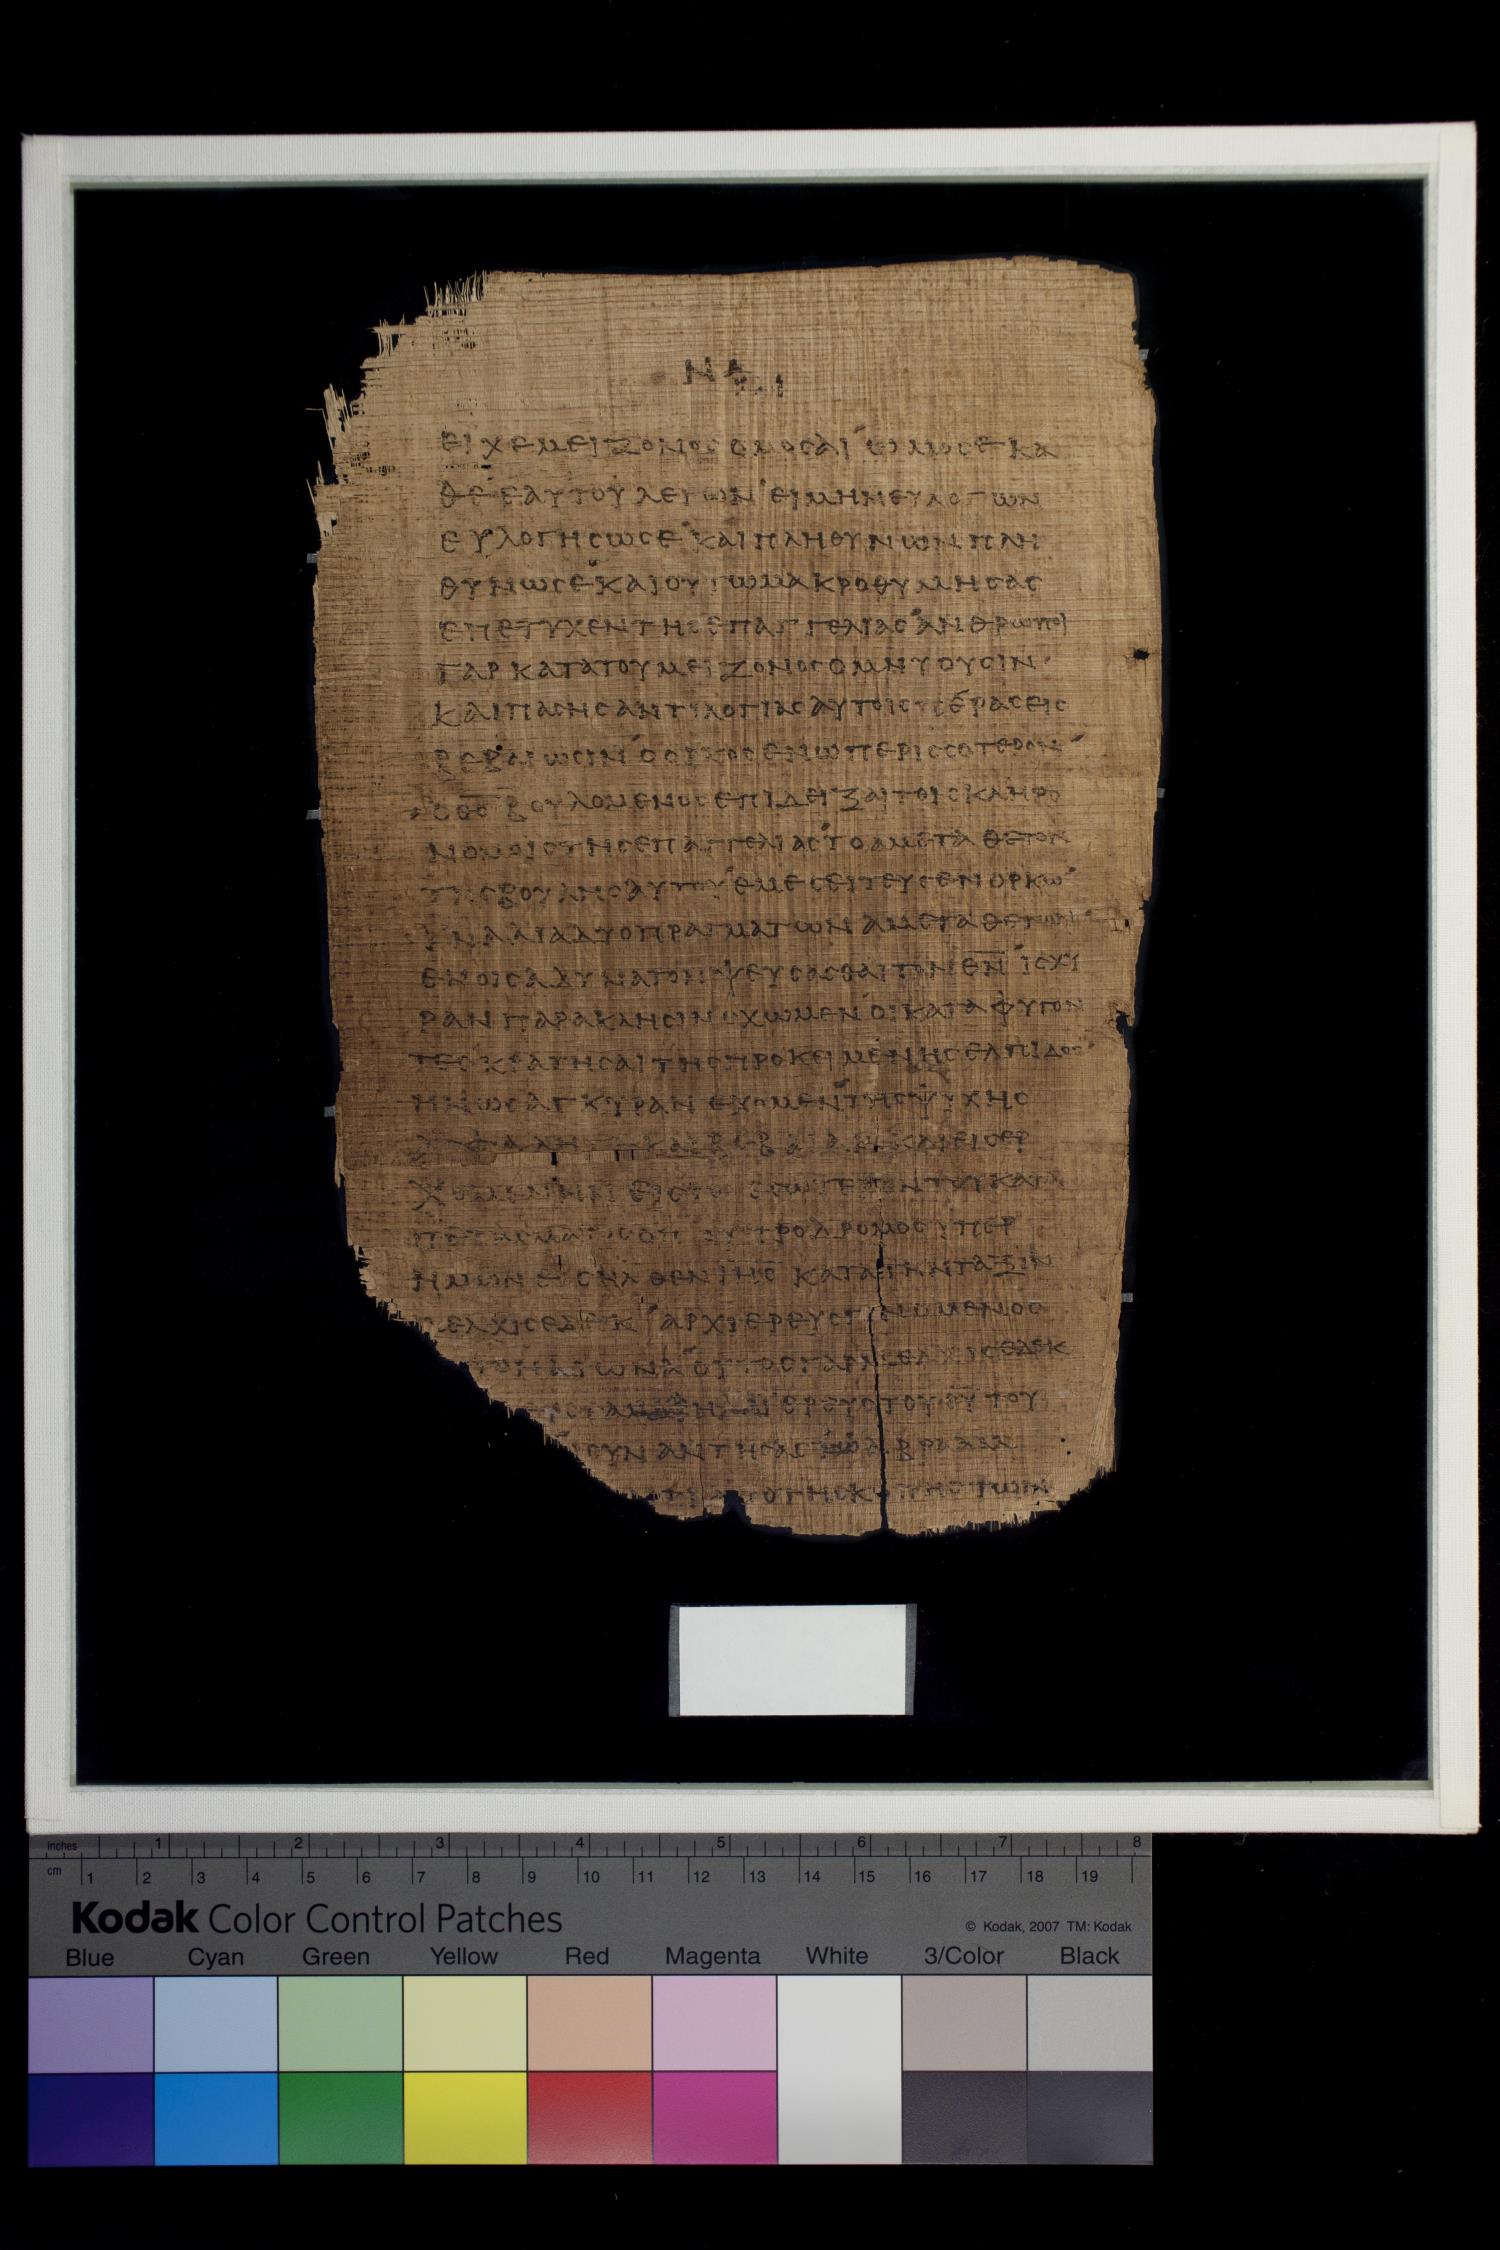 ΝΔ
ΕΙΧΕ ΜΕΙΖΟΝΟΣ ΟΜΟΣΑΙ ΩΜΟΣΕ ΚΑ
ΘΕ ΕΑΥΤΟΥ ΛΕΓΩΝ ΕΙ ΜΗΝ ΕΥΛΟΓΩΝ
ΕΥΛΟΓΗΣΩ ΣΕ ΚΑΙ ΠΛΗΘΥΝΩΝ ΠΛΗ
ΘΥΝΩ ΣΕ ΚΑΙ ΟΥΤΩ ΜΑΚΡΟΘΥΜΗΣΑΣ
ΕΠΕΤΥΧΕΝ ΤΗΣ ΕΠΑΓΓΕΛΙΑΣ ΑΝΘΡΩΠΟΙ
ΓΑΡ ΚΑΤΑ ΤΟΥ ΜΕΙΖΟΝΟΣ ΟΜΝΥΟΥΣΙΝ
ΚΑΙ ΠΑΣΗΣ ΑΝΤΙΛΟΓΙΑΣ ΑΥΤΟΙΣ ΠΕΡΑΣ ΕΙΣ
ΒΕΒΑΙΩΣΙΝ Ο ΟΡΚΟΣ ΕΝ Ω ΠΕΡΙΣΣΟΤΕΡΟΝ
Ο ΘΣ ΒΟΥΛΟΜΕΝΟΣ ΕΠΙΔΕΙΞΑΙ ΤΟΙΣ ΚΛΗΡΟ
ΝΟΜΟΙΣ ΤΗΣ ΕΠΑΓΓΕΛΙΑΣ ΤΟ ΑΜΕΤΑΘΕΤΟΝ
ΤΗΣ ΒΟΥΛΗΣ ΑΥΤΟΥ ΕΜΕΣΕΙΤΕΥΣΕΝ ΟΡΚΩ
ΙΝΑ ΔΙΑ ΔΥΟ ΠΡΑΓΜΑΤΩΝ ΑΜΕΤΑΘΕΤΩΝ
ΕΝ ΟΙΣ ΑΔΥΝΑΤΟΝ ΨΕΥΣΑΣΘΑΙ ΤΟΝ ΘΝ ΙΣΧΥ
ΡΑΝ ΠΑΡΑΚΛΗΣΙΝ ΕΧΩΜΕΝ ΟΙ ΚΑΤΑΦΥΓΟΝ
ΤΕΣ ΚΡΑΤΗΣΑΙ ΤΗΣ ΠΡΟΚΕΙΜΕΝΗΣ ΕΛΠΙΔΟΣ
ΗΝ ΩΣ ΑΓΚΥΡΑΝ ΕΧΟΜΕΝ ΤΗΣ ΨΥΧΗΣ
ΚΑΙ ΕΙΣΕΡ
ΧΟΜΕΝΗΝ ΕΙΣ ΤΟ ΕΣΩΤΕΡΟΝ ΤΟΥ ΚΑΤΑ
ΠΕΤΑΣΜΑΤΟΣ ΟΠΟΥ ΠΡΟΔΡΟΜΟΣ ΥΠΕΡ
ΗΜΩΝ ΕΙΣΗΛΘΕΝ ΙΗΣ ΚΑΤΑ ΤΗΝ ΤΑΞΙΝ
ΜΕΛΧΙΣΕΔΕΚ ΑΡΧΙΕΡΕΥΣ ΓΙΝΟΜΕΝΟΣ
ΤΟΝ ΑΙΩΝΑ ΟΥΤΟΣ ΓΑΡ Ο ΜΕΛΧΙΣΕΔΕΚ
ΙΕΡΕΥΣ ΤΟΥ ΘΥ ΤΟΥ
ΣΥΝΑΝΤΗΣΑΣ ΑΒΡΑΑΜ
ΑΠΟ ΤΗΣ ΚΟΠΗΣ ΤΩΝ
inches 1 2 3 4 5 6 7 8
cm 1 2 3 4 5 6 7 8 9 10 11 12 13 14 15 16 17 18 19
Kodak Color Control Patches © Kodak, 2007 TM: Kodak
Blue Cyan Green Yellow Red Magenta White 3/Color Black